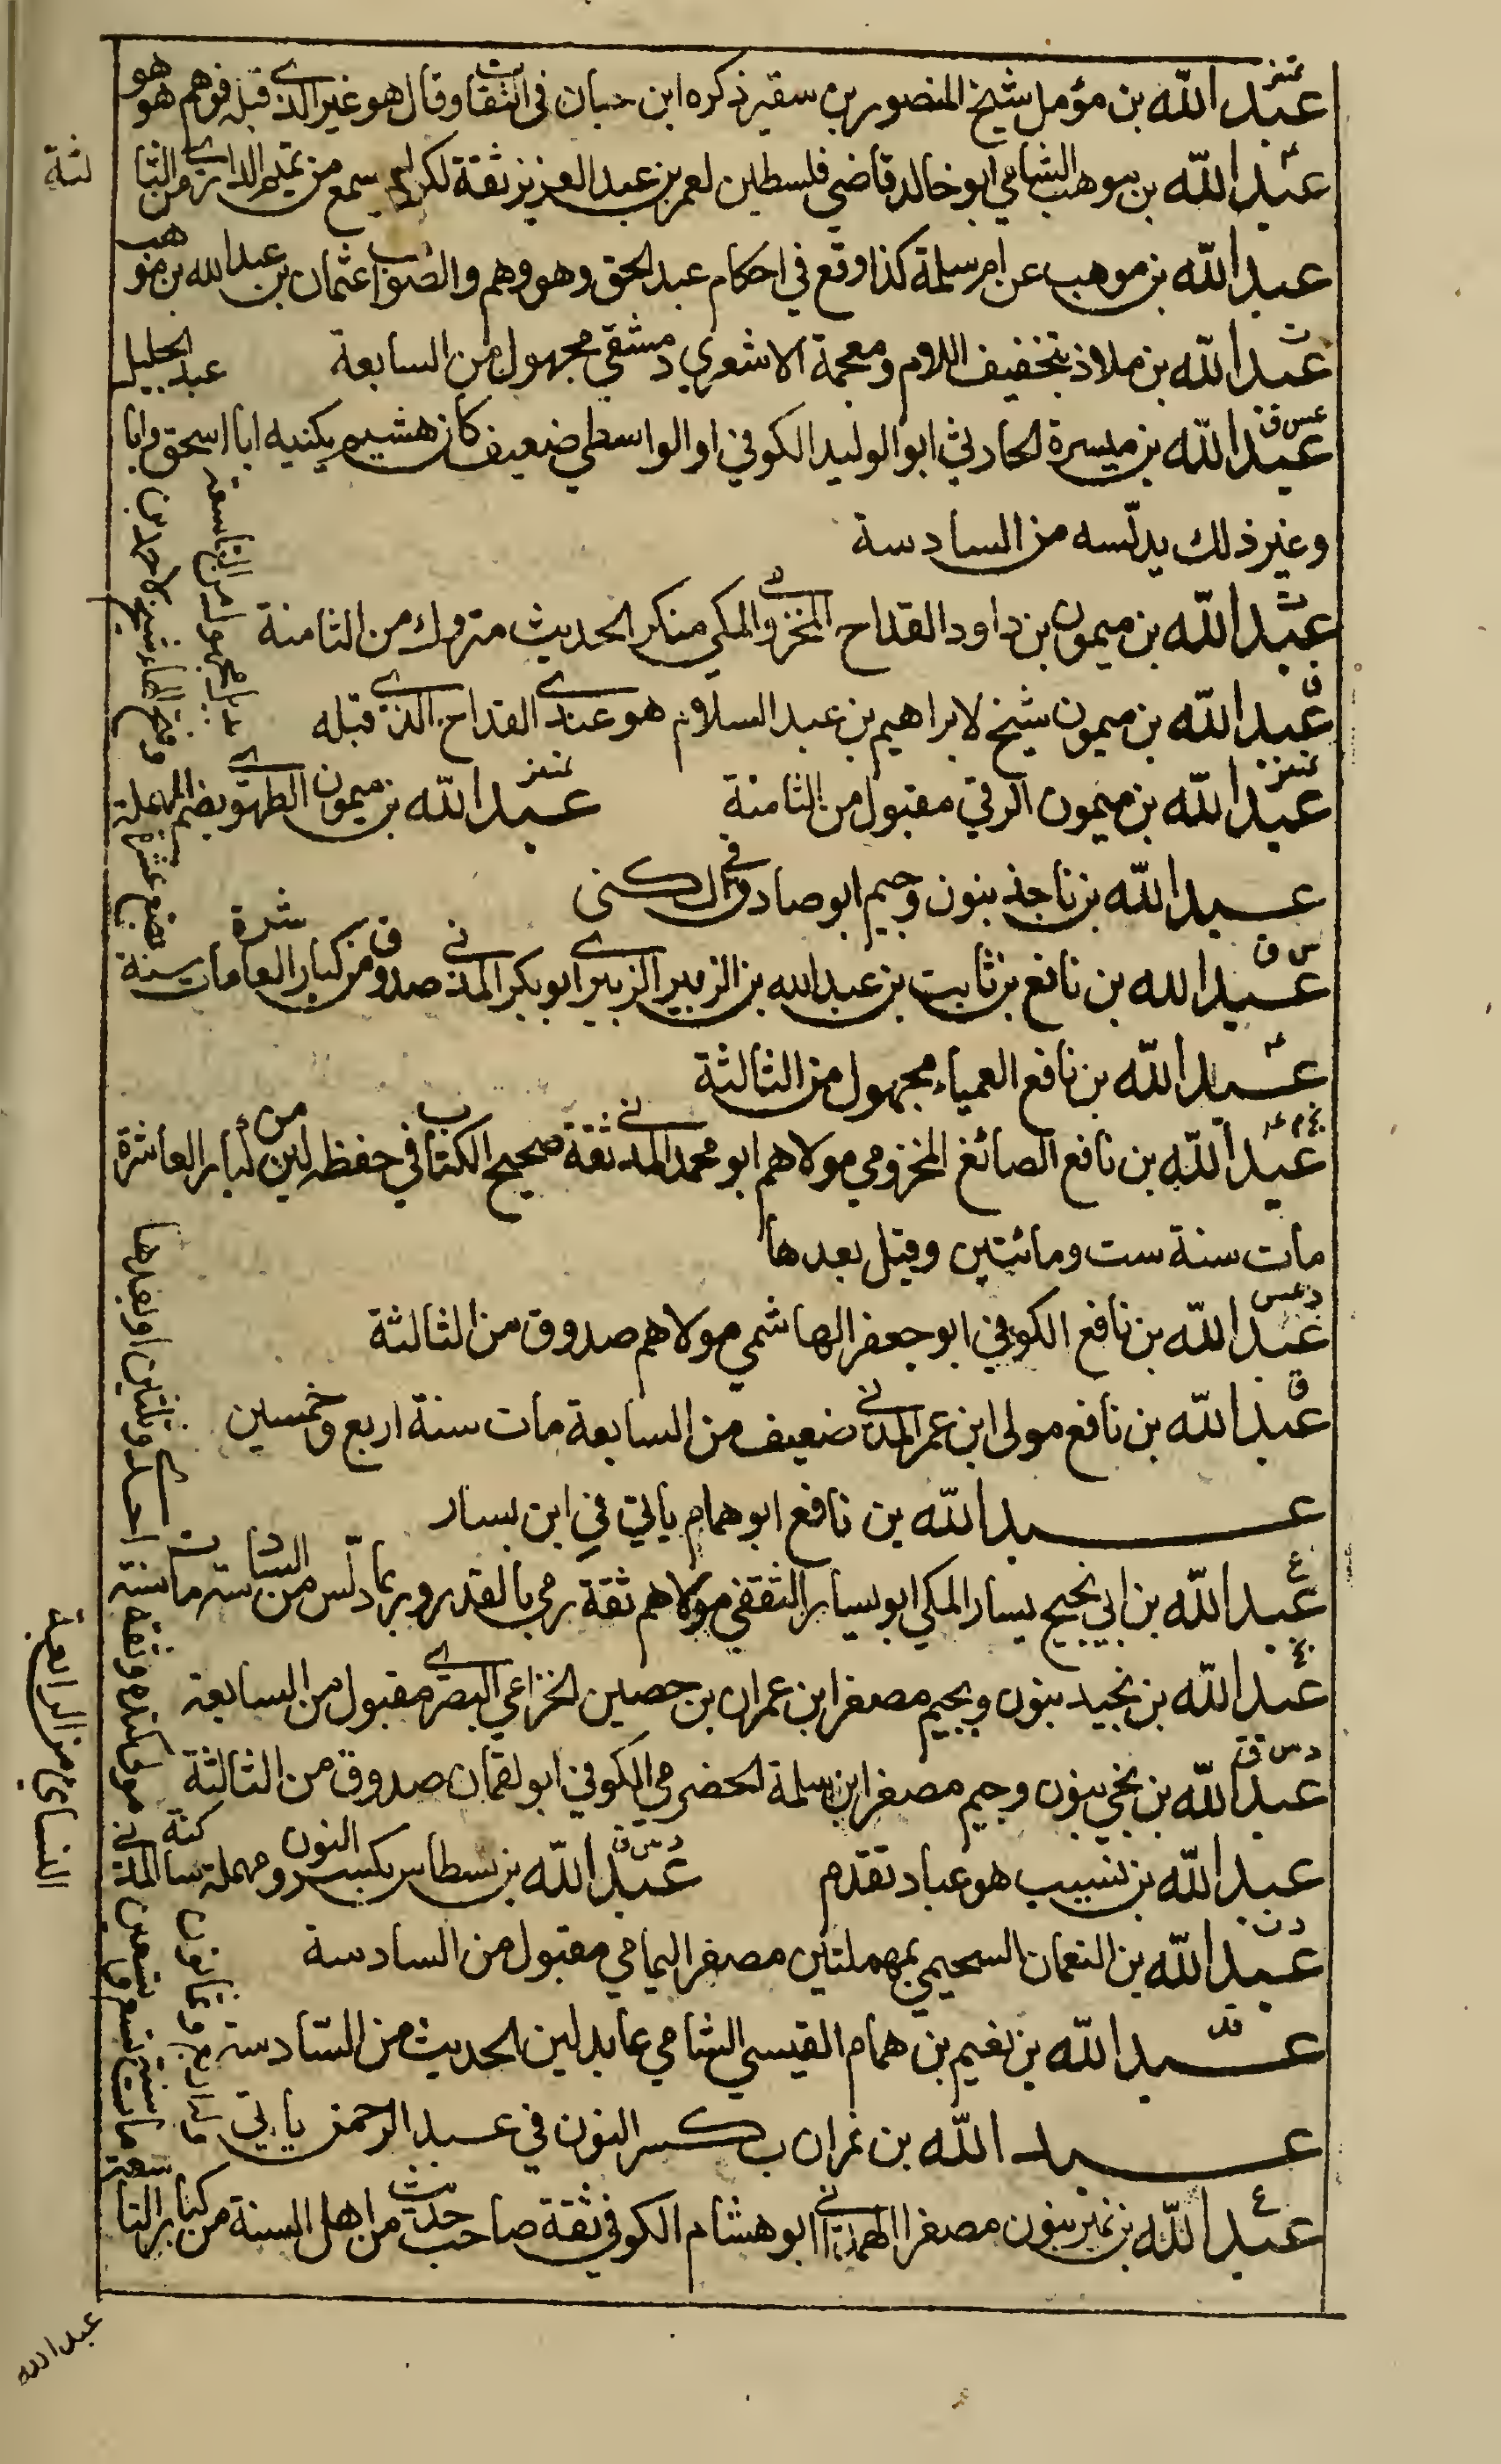 تمييز
عبد الله بن مؤمل شيخ المنصور بن سقير ذكره ابن حبان في الثقات وقال هو غير الذي قبله فوهم هو هو
عبد الله بن موهب الشامي ابو خالد قاضي فلسطين لعمر بن عبد العزيز ثقة لكن لم يسمع من تميم الداري من الثا
لثة
عبد الله بن موهب عن ام سلمة كذا وقع في احكام عبد الحق وهو وهم والصواب عثمان بن عبد الله بن موهب
عبد الله بن ملاذ بتخفيف اللام ومعجمة الاشعري دمشقي مجهول من السابعة
عس ق
عبد الله بن ميسرة الحارثي ابو الوليد الكوفي او الواسطي ضعيف كان هشيم يكنيه ابا اسحق وابا عبد الجليل
وغير ذلك يدلسه من السادسة
ت
عبد الله بن ميمون بن داود القداح المخزومي المكي منكر الحديث متروك من الثامنة
ق
عبد الله بن ميمون شيخ لابراهيم بن عبد السلام هو عندي القداح الذي قبله
تمييز
عبد الله بن ميمون الرقي مقبول من الثامنة
تمييز
عبد الله بن ميمون الطهوي بضم المهملة
وفتح الهاء شيخ لاحمد بن
بديل مجهول من التاسعة
عبد الله بن ناجذ بنون وجيم ابو صادق في الكنى
س ق
عبد الله بن نافع بن ثابت بن عبد الله بن الزبير الزبيري ابو بكر المدني صدوق من كبار العاشرة مات سنة
بضع عشرة
عبد الله بن نافع العمياء مجهول من الثالثة
بخ م عه
عبد الله بن نافع الصائغ المخزومي مولاهم ابو محمد المدني ثقة صحيح الكتاب في حفظه لين من كبار العاشرة
مات سنة ست ومائتين وقيل بعدها
د عس
عبد الله بن نافع الكوفي ابو جعفر الهاشمي مولاهم صدوق من الثالثة
ق
عبد الله بن نافع مولى ابن عمر المدني ضعيف من السابعة مات سنة اربع وخمسين
عبد الله بن نافع ابو همام ياتي في ابن يسار
ع
عبد الله بن ابي نجيح يسار المكي ابو يسار الثقفي مولاهم ثقة رمي بالقدر وربما دلس من السادسة مات سنة
احدى وثلثين او بعدها
بخ
عبد الله بن نجيد بنون وبجيم مصغر ابن عمران بن حصين الخزاعي البصري مقبول من السابعة
د س ق
عبد الله بن نجي بنون وجيم مصغر ابن سلمة الحضرمي الكوفي ابو لقمان صدوق من الثالثة
عبد الله بن نسيب هو عباد تقدم
د س ق
عبد الله بن نسطاس بكسر النون ومهملة ساكنة المدني
مولى كندة وثقه
النسائي من الرابعة
د ت
عبد الله بن النعمان السحيمي بمهملتين مصغر اليمامي مقبول من السادسة
قد
عبد الله بن نعيم بن همام القيسي الشامي عابد لين الحديث من السادسة
عبد الله بن نمران بكسر النون في عبد الرحمن ياتي
ع
عبد الله بن نمير بنون مصغر الهمداني ابو هشام الكوفي ثقة صاحب حديث من اهل السنة من كبار التا
سعة مات سنة تسع وتسعين
وله اربع وثمانون
عبد الله